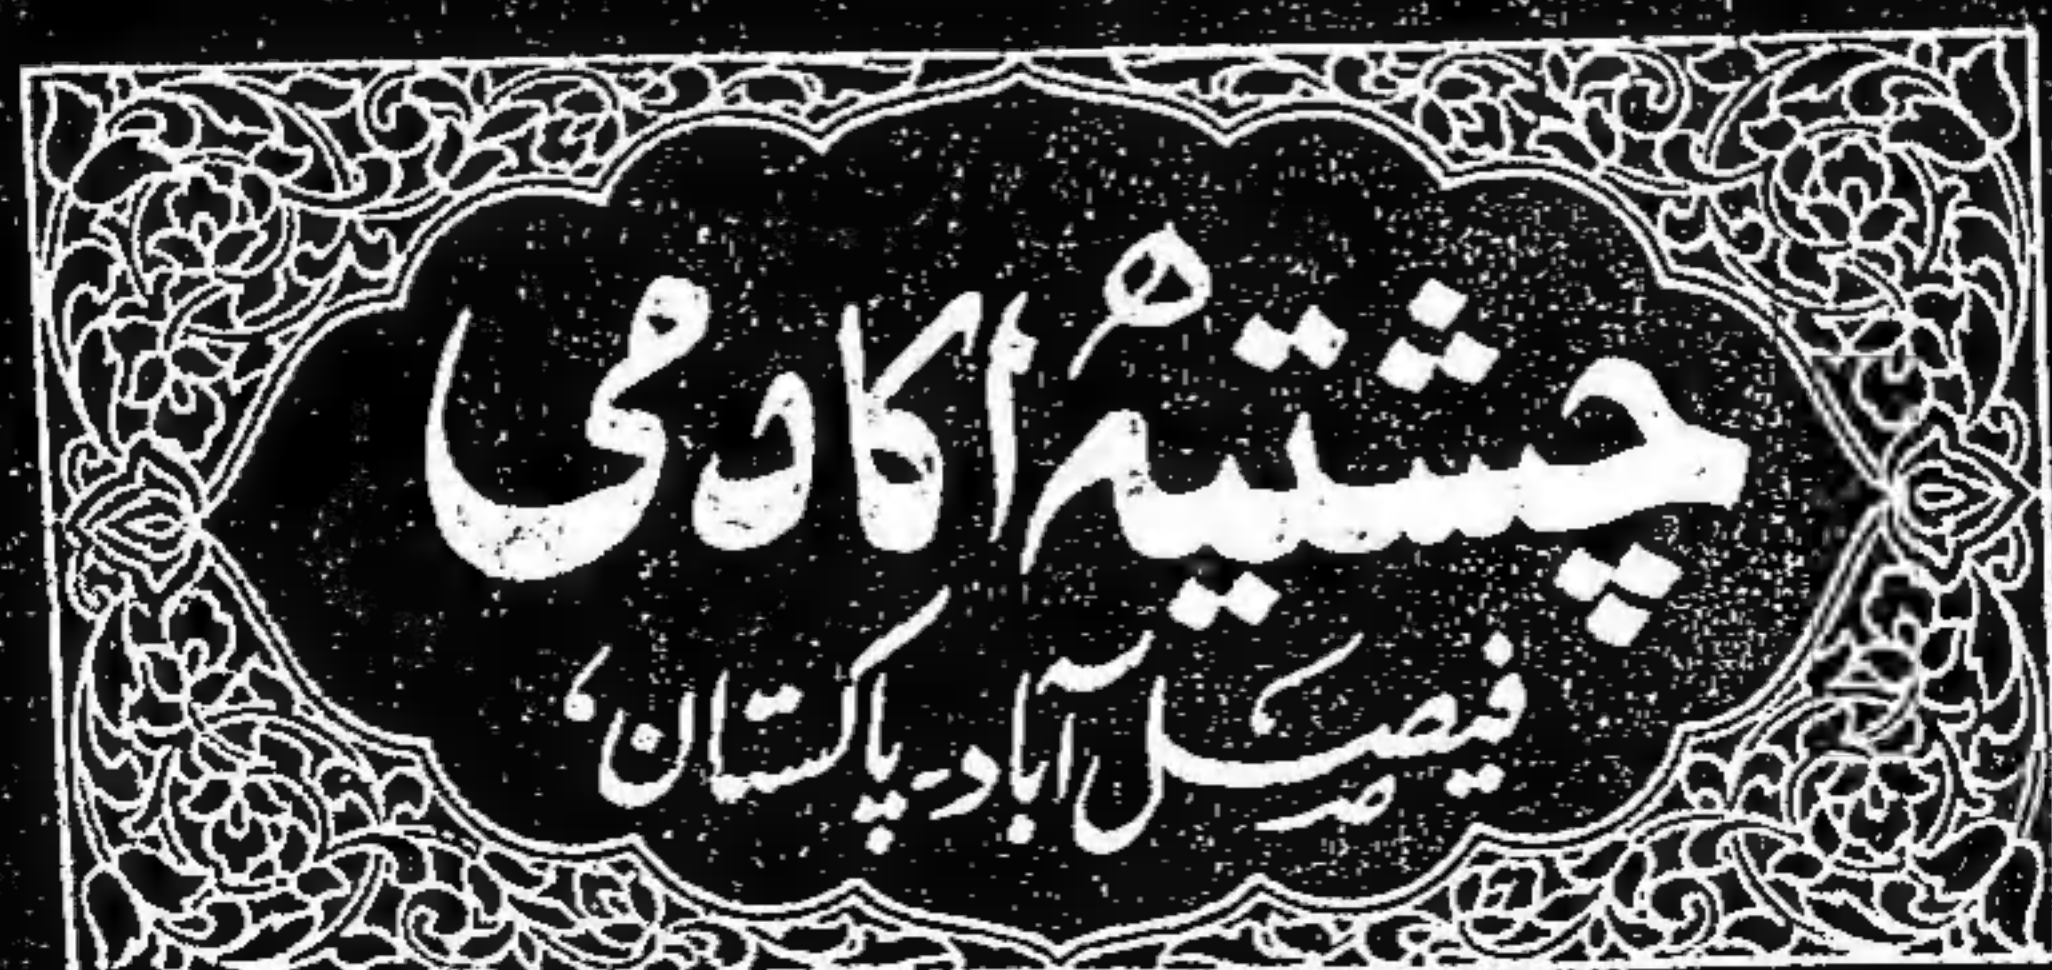 چشتیہ اکادمی
فیصل آباد - پاکستان